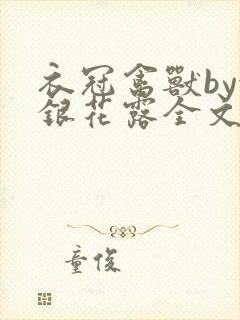 衣冠禽獸by
銀花露全文
童俊